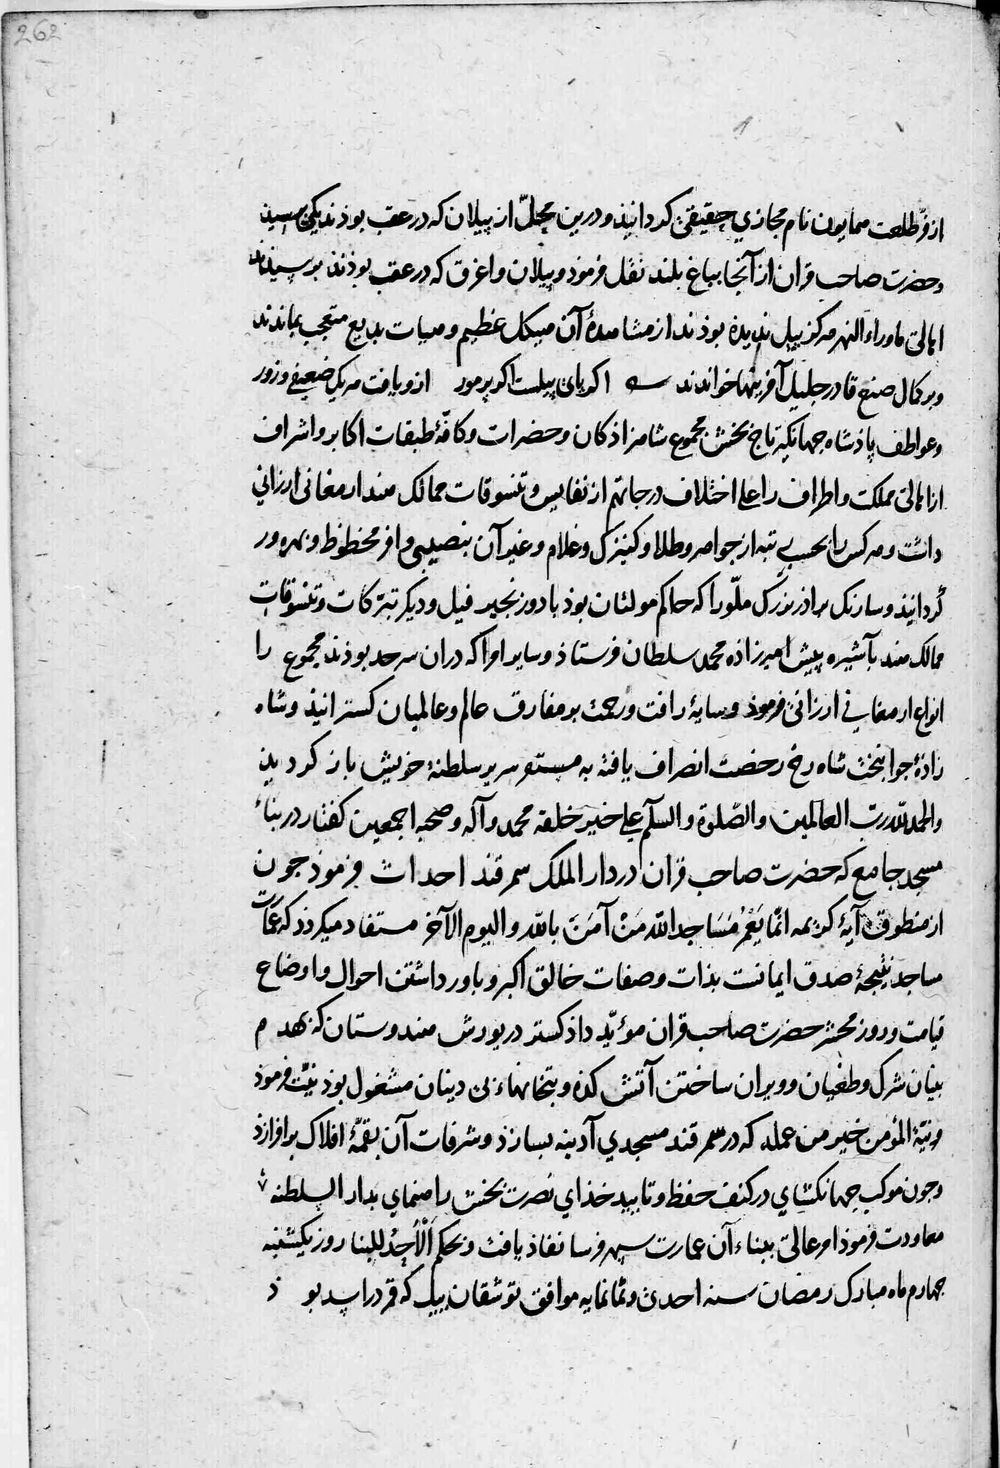 262
از فرّ طلعت همایون نام مجازی حقیقی کردانیذ و درین محلّ از پیلان که در عقب بوذند یکی برسید
و حضرت صاحب قران از آنجا بباغ بلند نقل فرموذ و پیلان و اغرق که در عقب بوذند برسیدند
اهالی ماوراء النهر هرکز پیل ندیده بوذند از مشاهدۀ آن هیکل عظیم و هیات بدیع متعجب بماندند
و بر کمال صنع قادر جلیل آفرینها خواندند اکر پای پیلست اکر پر مور ازو یافت هر یک ضعیفی و زور
و عواطف پاذشاه جهانکیر تاج بخش مجموع شاهزاذکان و حضرات و کافّۀ طبقات اکابر و اشراف
از اهالی مملکت و اطراف را علی اختلاف درجاتهم از نفایس و تنسوقات ممالک هند ارمغانی ارزانی
داشت و هر کس را بحسب رتبه از جواهر و طلا و کنیزک و غلام و غیر آن بنصیبی وافر محظوظ و بهره ور
کردانیذ و سارنک براذر بزرک ملّو را که حاکم مولتان بوذ با دو زنجیر فیل و دیکر تبرّکات و تنسوقات
ممالک هند بآشپره پیش امیرزاذه محمد سلطان فرستاذ و سایر امرا که دران سرحد بوذند مجموع را
انواع ارمغانی ارزانی فرموذ و سایۀ رافت و رحمت بر مفارق عالم و عالمیان کسترانیذ و شاه
زاذۀ جوانبخت شاه رخ رخصت انصراف یافته به مستقر سریر سلطنۀ خویش باز کردیذ
والحمد لله رب العالمین والصّلوة والسّلم علی خیر خلقه محمد وآله وصحبه اجمعین کفتار در بناء
مسجد جامع که حضرت صاحب قران در دار الملک سمرقند احداث فرموذ جون
از منطوق آیۀ کریمه انّما یَعْمُرُ مَسَاجِدَ الله مَنْ آمَنَ بالله والیوم الآخر مستفاد میکردذ که عمارت
مساجد نتیجۀ صدق ایمانست بذات و صفات خالق اکبر و باور داشتن احوال و اوضاع
قیامت و روز محشر حضرت صاحب قران مؤیّد داذکستر در یورش هندوستان که بهدم
بنیان شرک و طغیان و ویران ساختن آتش کده و بتخانهاء بی دینان مشغول بوذ نیّت فرموذ
ونیّة المؤمن خیر من عمله که در سمرقند مسجدی آدینه بسازذ و شرفات آن بقمّۀ افلاک برافرازذ
و جون موکب جهانکشای در کنف حفظ و تایید خذای نصرت بخش راهنمای بدار السلطنه
معاودت فرموذ امر عالی ببناء آن عمارت سپهرفرسا نفاذ یافت و بحکم اَلْاَحَدُ للبنا روز یکشنبه
جهارم ماه مبارک رمضان سنه احدی و ثمانمایه موافق توشقان ییل که قمر در اسد بوذ